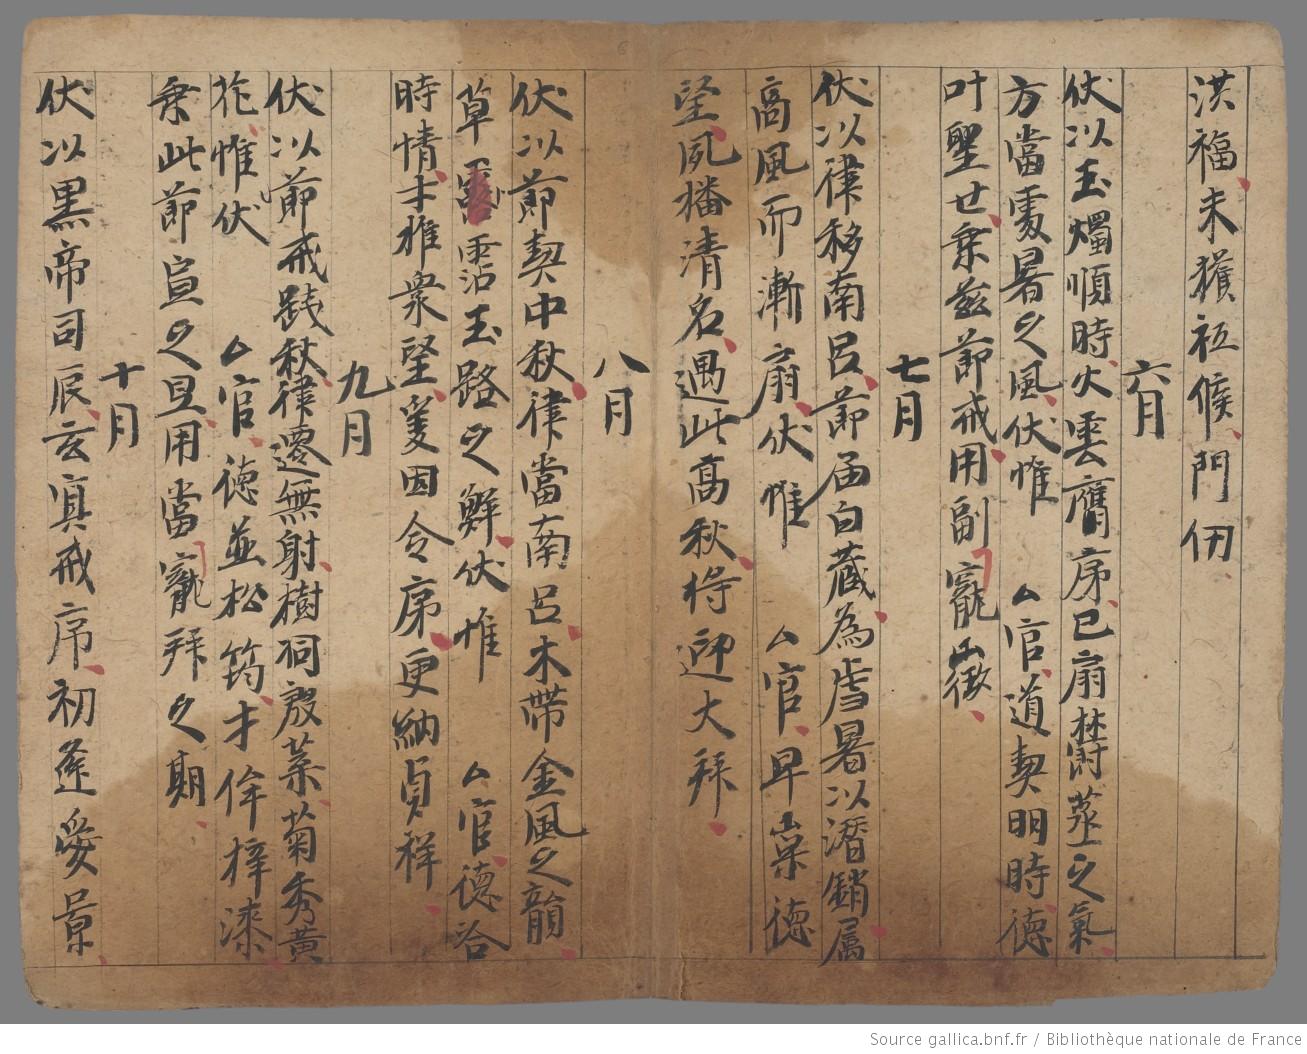 洪福未獲祗候門伢
六月
伏以玉燭順時火雲膺序已扇欝蒸之氣
方當處暑之風伏惟 厶官道契明時德
叶聖世乗兹莭戒用副寵徵
七月
伏以律移南呂莭届白藏為虐暑以潛銷属
高風而漸扇伏惟 厶官早稟德
望夙播清名遇此髙秋将迎大拜
八月
伏以莭契中秋律當南呂木帶金風之韻
草霑玉路之鮮伏惟 厶官德洽
時情才推衆望㝹因令序更納貞祥
九月
伏以莭戒践秋律遷無射樹祠殷葉菊秀黄
花惟伏 厶官德並松筠才侔梓漆
乗此莭宣之旦用當寵拜之期
十月
伏以黒帝司辰玄冥戒序初莚愛景
Source gallica.bnf.fr / Bibliothèque nationale de France